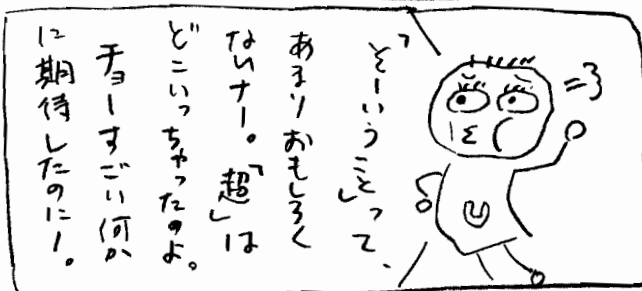 「そーいうこと」って、
あまりおもしろく
ないナー。「超」は
どこいっちゃったのよ。
チョーすごい何か
に期待したのに！。